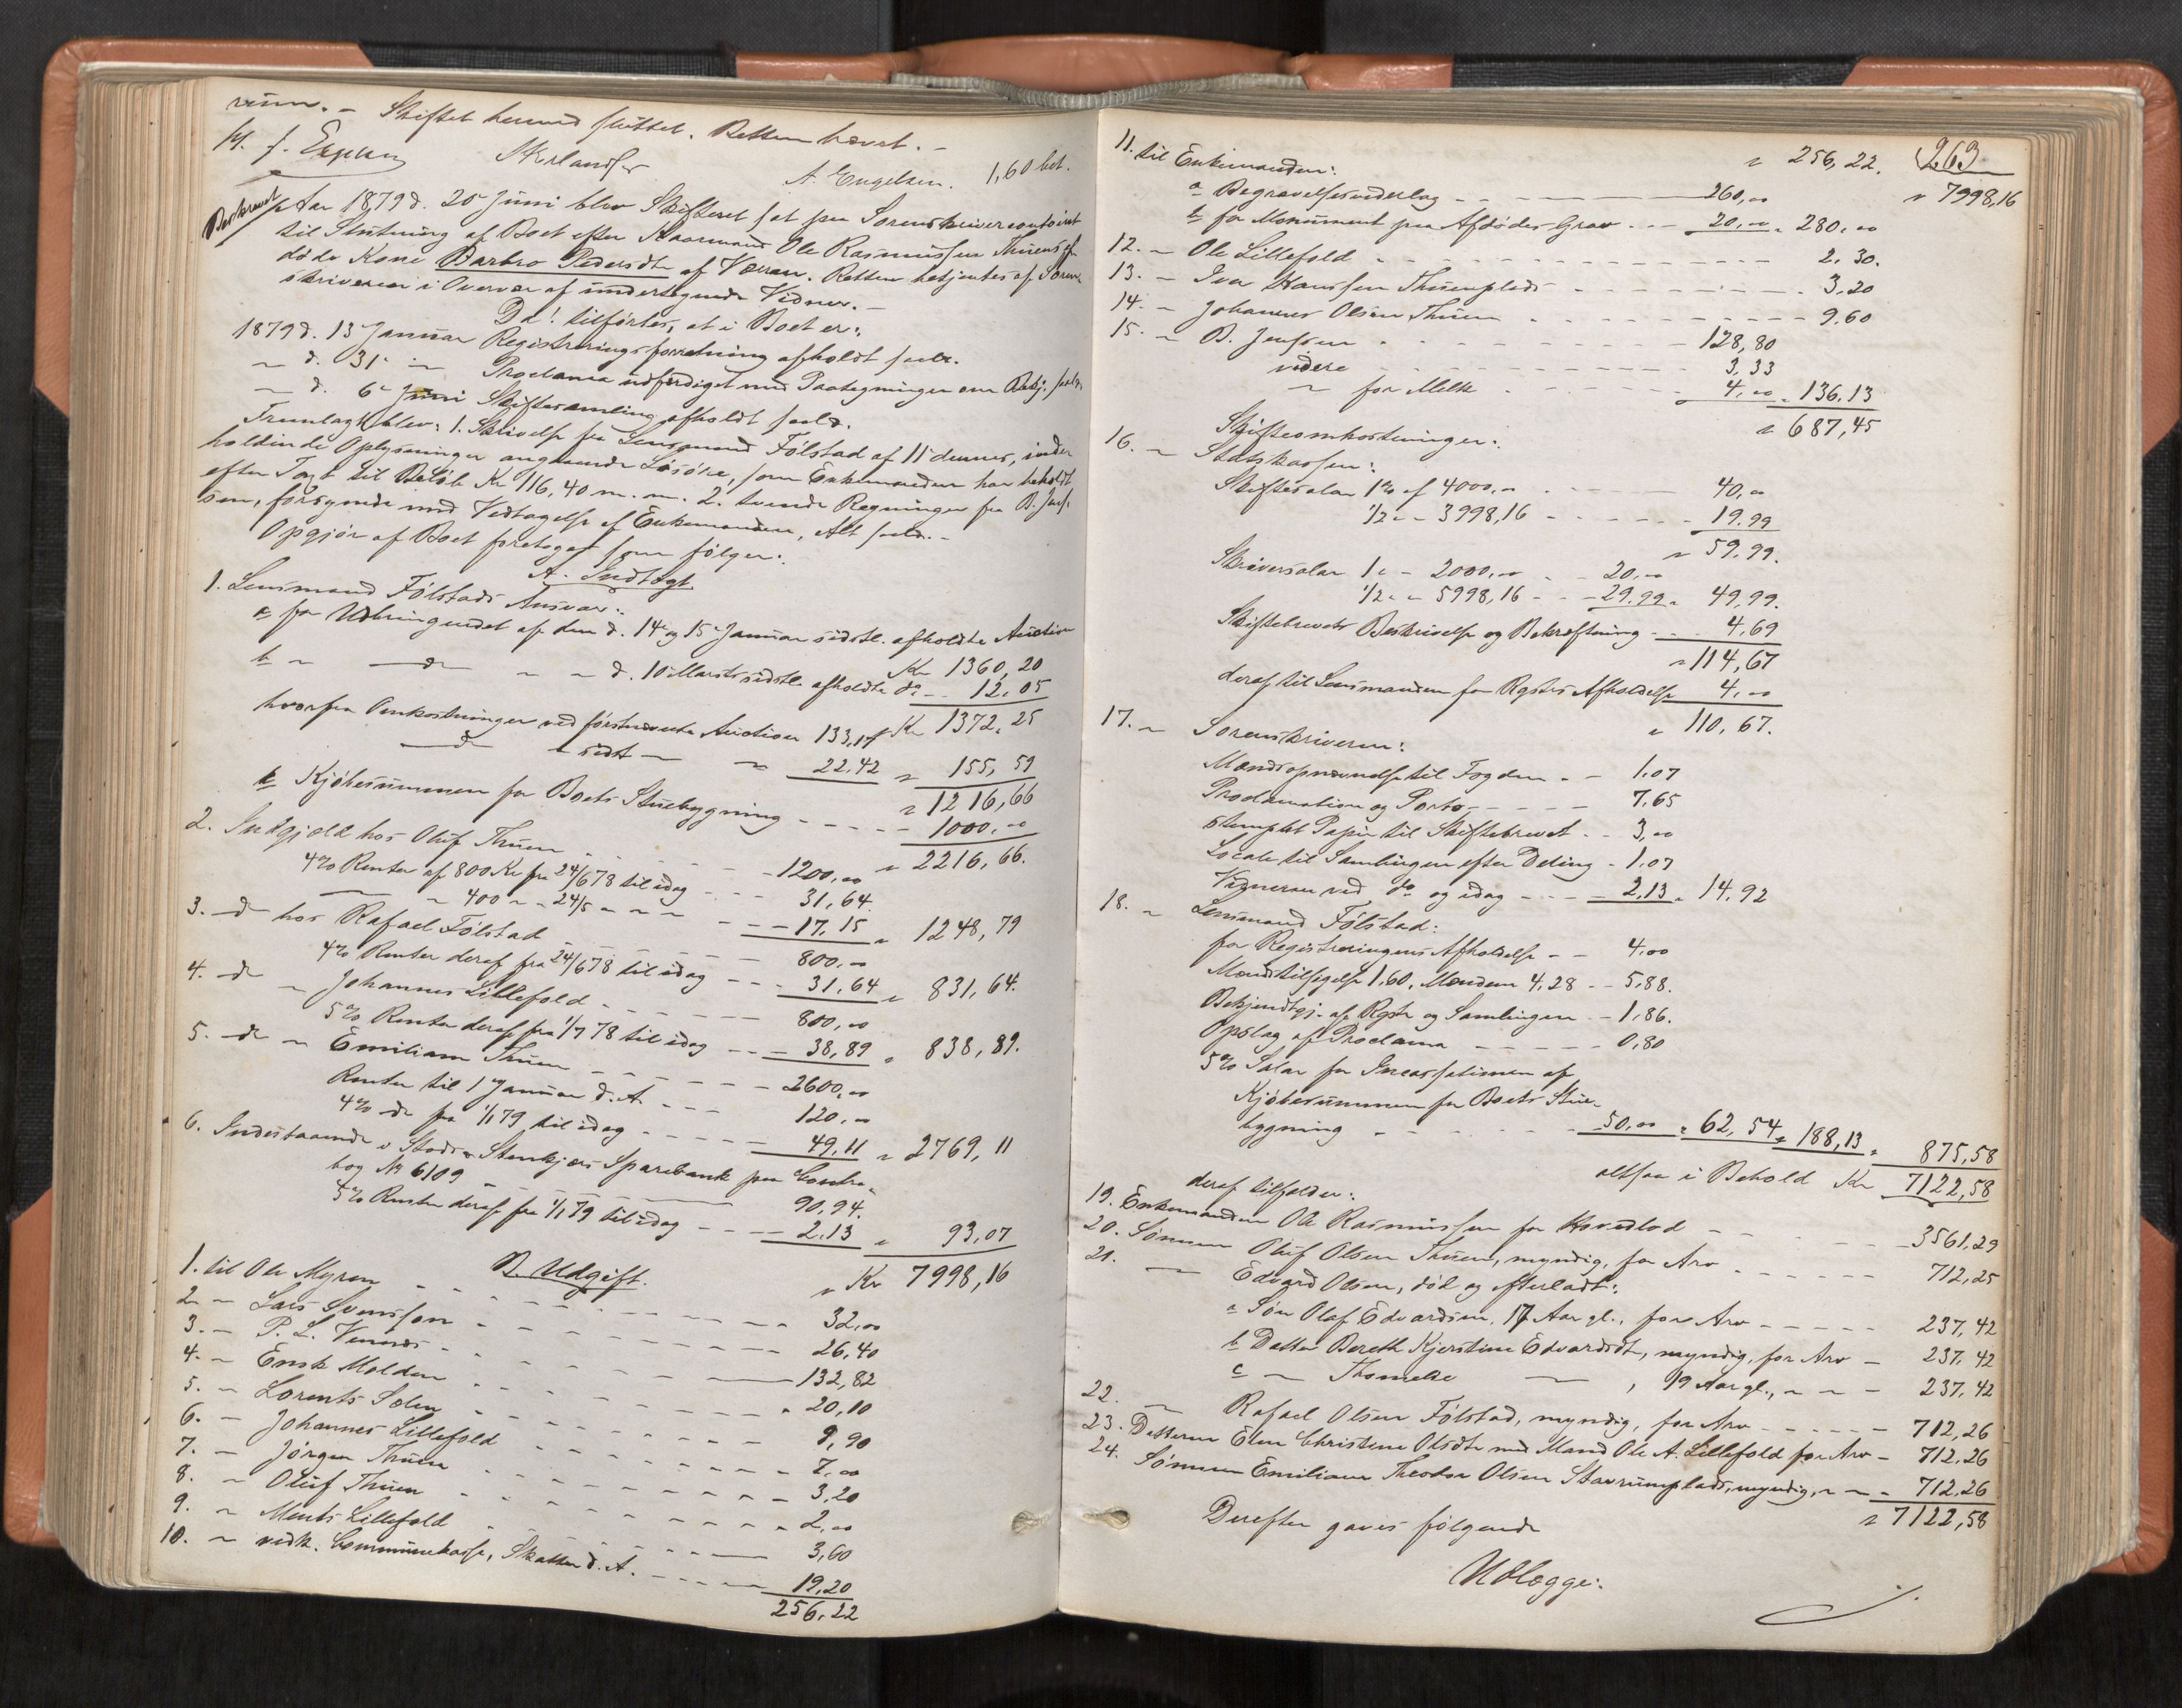 Skiftet hermed sluttet. Retten hævet. –
A. Engelsen. 1,60 bet.
Beskrevet
Aar 1879 d. 20 Juni blev Skifteret sat paa Sorenskrivercontoiret
til Slutning af Boet efter Kaarmand Ole Rasmussen Thuens af-
døde Kone Barbro Pedersdtr af Værran. Retten betjentes af Soren-
skriveren i Overvær af undertegnede Vidner. –
Da! tilførtes, at i Boet er:
1879 d. 13 Januar Registreringsforretning afholdt saal.
" d. 31 " Proclama udfærdiget med Paategninger om Bekj. saal.
" d. 6 Juni Skiftesamling afholdt saal.
Fremlagt blev: 1. Skrivelse fra Lensmand Følstad af 11 dennes, inde-
holdende Oplysninger angaaende Løsøre, som Enkemanden har beholdt
efter Taxt til Beløb Kr 116,40 m. m. 2. tvende Regninger fra B. Jens-
sen, forsynede med Vedtagelse af Enkemanden, Alt saal. –
Opgjør af Boet foretoges som følger:
A. Indtægt
1. Lensmand Følstads Ansvar:
a for Udbringendet af den d. 14 og 15 Januar sidstl. afholdte Auction
Kr 1360,20
b " – d – " " d. 10 Marts sidstl. afholdte do - - 12,05
Kr 1372,25
hvorfra Omkostninger ved førstnævnte Auction 133,17
– d – " sidst – " 22,42 " 155,59
" 1216,66
b Kjøbesummen for Boets Stuebygning - - - - 1000,00
" 2216,66.
2. Indgjæld hos Oluf Thuen - - - 1200,00
4% Renter af 800 Kr fra 24/6 78 til idag - - - 31,64
" 400 " - 24/5 - " " - - - 17,15 " 1248,79
3. – d – hos Rafael Følstad - - - 800,00
4% Renter deraf fra 24/6 78 til idag - - - 31,64 " 831,64.
4. – d – " Johannes Lillefold - - - 800,00
5% Renter deraf fra 1/7 78 til idag - - - 38,89 " 838,89.
5. – d – " Emilian Thuen - - - 2600,00
Renter til 1 Januar d. A. - - - 120,00
4% do fra 1/1 79 til idag - - - 49,11 " 2769,11
6. Indestaaende i Stods & Stenkjærs Sparebank paa Contra-
bog No 6109 - - - 90,94.
5% Renter deraf fra 1/1 79 til idag - - - 2,13 " 93,07
" Kr 7998,16
B. Udgift.
1. til Ole Myren - - - 32,00
2. – Lars Svensson - - - 26,40
3. – P. L. - - - 132,82
4. – Molden - - - 20,10
5. – Lorents - - - 9,90
6. – Johannes Lillefold - - - 7,00
7. – Jørgen Thuen - - - 3,20
8. – Oluf Thuen - - - 2,00
9. – Ments Lillefold - - - 3,60
10. – vedk. Communekasse, Skatter d. A. - - - 19,20
256,22
263
" 256,22. " 7998,16
11. til Enkemanden:
a Begravelsesvederlag - - - 260,00
b for Monument paa Afdødes Grav - - - 20,00 " 280,00
12. – Ole Lillefold - - - 2,30.
13. – Iver Hanssen Thuenplads - - - 3,20
14. – Johannes Olsen Thuen - - - 9,60
15. – B. Jenssen - - - 128,80
videre - - - 3,33
" for Melk - - - 4,00 " 136,13
" 687,45
Skifteomkostninger:
16. – Statskassen:
Skiftesalær 1% af 4000,00 - - - 40,00
1/2 " - 3998,16 - - - 19,99
" 59,99.
Skriversalær 1 " - 2000,00 - - 20,00
1/2 " - 5998,16 - - - 29,99 " 49,99.
Skiftebrevets Beskrivelse og Bekræftning - - - 4,69
" 114,67
deraf til Lensmanden for Rgstrs Afholdelse 4,00
" 110,67.
17. – Sorenskriveren:
Mændsopnævnelse til Fogden - - 1,07
Proclamation og Porto - - - 7,65
stemplet Papir til Skiftebrevet - - 3,00
Locale til Samlingen efter Deling - 1,07
Vidnerne ved do og idag - - - 2,13 " 14,92
18. – Lensmand Følstad:
for Registreringens Afholdelse - - 4,00
Mændstilsigelse 1,60, Mændene 4,28 - - 5,88.
Bekjendtgj. af Rgstr og Samlingen - 1,86.
Opslag af Proclama - - - 0,80
5% Salær for Incassationen af
Kjøbesummen for Boets Stue-
bygning - - - 50,00 " 62,54 " 188,13 " 875,58
altsaa i Behold Kr 7122,58
deraf tilfalder:
19. Enkemanden Ole Rasmussen for Hovedlod - - - 3561,29
20. Sønnen Oluf Olsen Thuen, myndig, for Arv - - - 712,25
21. – Edvard Olsen, død og efterladt:
a Søn Olaf Edvardsen, 17 Aar gl., for Arv - - - 237,42
b Datter Bereth Kjerstine Edvardsdt, myndig, for Arv - 237,42
c " Thomelie – , 19 Aar gl., " " - 237,42
22. – Rafael Olsen Følstad, myndig, for Arv - - - 712,26
23. Datteren Elen Christine Olsdtr med Mand Ole A. Lillefold for Arv - 712,26
24. Sønnen Emilian Theodor Olsen Stavrumplads, myndig, " " - 712,26
" 7122,58
Derefter gaves følgende
Udlægge: